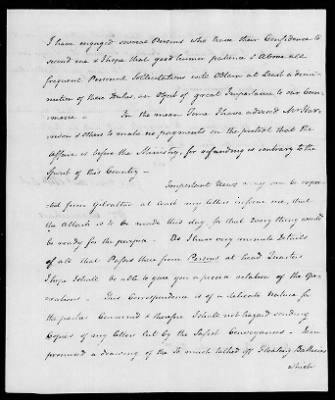 I have engaged several Persons who have their Confidence to
second me & I hope that good humor patience & above all
frequent Personal Sollicitations will Obtain at Least a dimi-
nution of these Duties, an Object of great Importance to our Com-
merce - In the mean Time I have advised Mr Har-
rison & others to make no payments on the pretext that the
Affair is before the Ministry, for refunding is contrary to the
Spirit of this Country -
Important News may be expec-
ted from Gibraltar as all my letters inform me, that
the Attack is to be made this day, for that every thing would
be ready for the purpose. As I have very minute details
of all that Passes there from Persons at head Quarters
I hope I shall be able to give you a precise relation of the Ope-
rations - This Correspondence is of a delicate Nature for
the parties Concerned & therefore I shall not hazard sending
Copies of my letters but by the Safest Conveyances - I am
promised a drawing of the So much talked off Floating Batteries
which